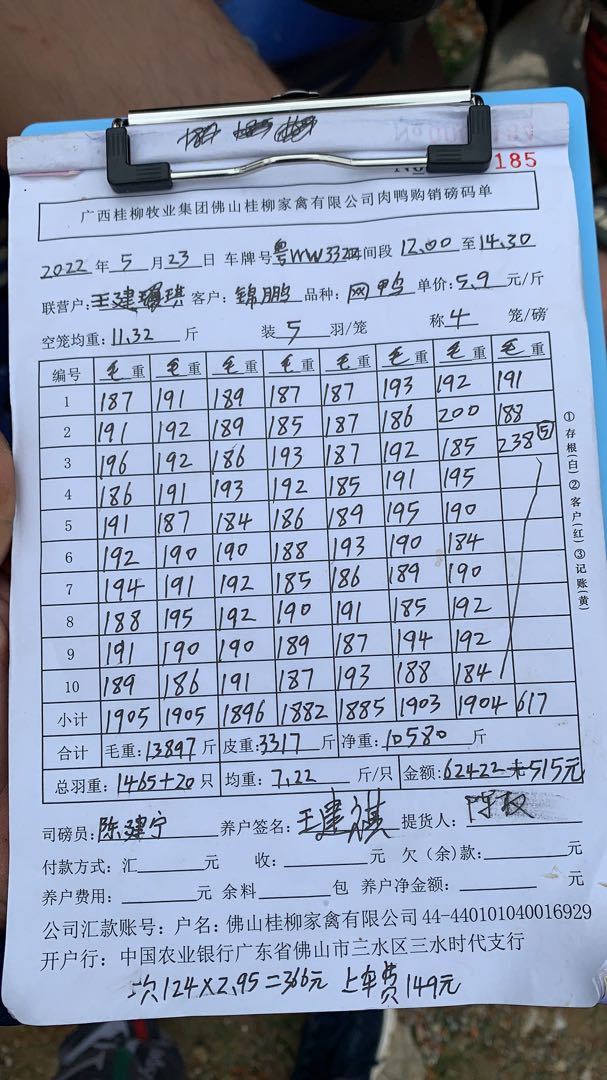 185
广西桂柳牧业集团佛山桂柳家禽有限公司肉鸭购销磅码单
2022 年 5 月 23 日 车牌号 粤 间段 12.00 至 14.30
联营户: 王建 琪 客户: 锦鹏 品种: 网鸭 单价: 5.9 元/斤
空笼均重: 11.32 斤 装 5 羽/笼 称 4 笼/磅
编号 毛重 毛重 毛重 毛重 毛重 毛重 毛重 毛重
1 187 191 189 187 187 193 192 191
2 191 192 189 185 187 186 200 188
3 196 192 186 193 187 192 185 238⑤
4 186 191 193 192 185 191 195
5 191 187 184 186 189 195 190
6 192 190 190 188 193 190 184
7 194 191 192 185 186 189 190
8 188 195 192 190 191 185 192
9 191 190 190 189 187 194 192
10 189 186 191 187 193 188 184
小计 1905 1905 1896 1882 1885 1903 1904 617
合计 毛重: 13897 斤 皮重: 3317 斤 净重: 10580 斤
总羽重: 1465+20 只 均重: 7.22 斤/只 金额: 62422 515元
①存根(白)②客户(红)③记账(黄)
司磅员: 陈建宁 养户签名: 王建 提货人:
付款方式: 汇 元 收: 元 欠(余)款: 元
养户费用: 元 余料 包 养户净金额: 元
公司汇款账号: 户名: 佛山桂柳家禽有限公司 44-440101040016929
开户行: 中国农业银行广东省佛山市三水区三水时代支行
次124×2.95=366元 上车费149元